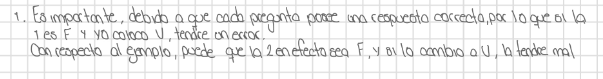 1. Es importante, debido a que cada pregunta posee una respuesta correcta, por lo que si la
1 es F y yo coloco V, tendre un error.
Con respecto al ejemplo, puede que la 2 en efecto sea F, y si lo cambio a V, la tendre mal